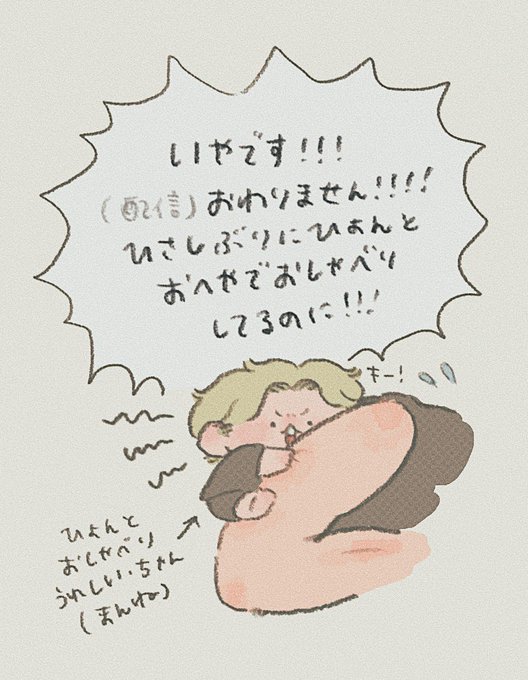 いやです!!!
(配信)おわりません!!!!
ひさしぶりにひょんと
おへやでおしゃべり
してるのに!!!
キー!
ひょんと
おしゃべり
うれしい・ちゃん
(まんね)